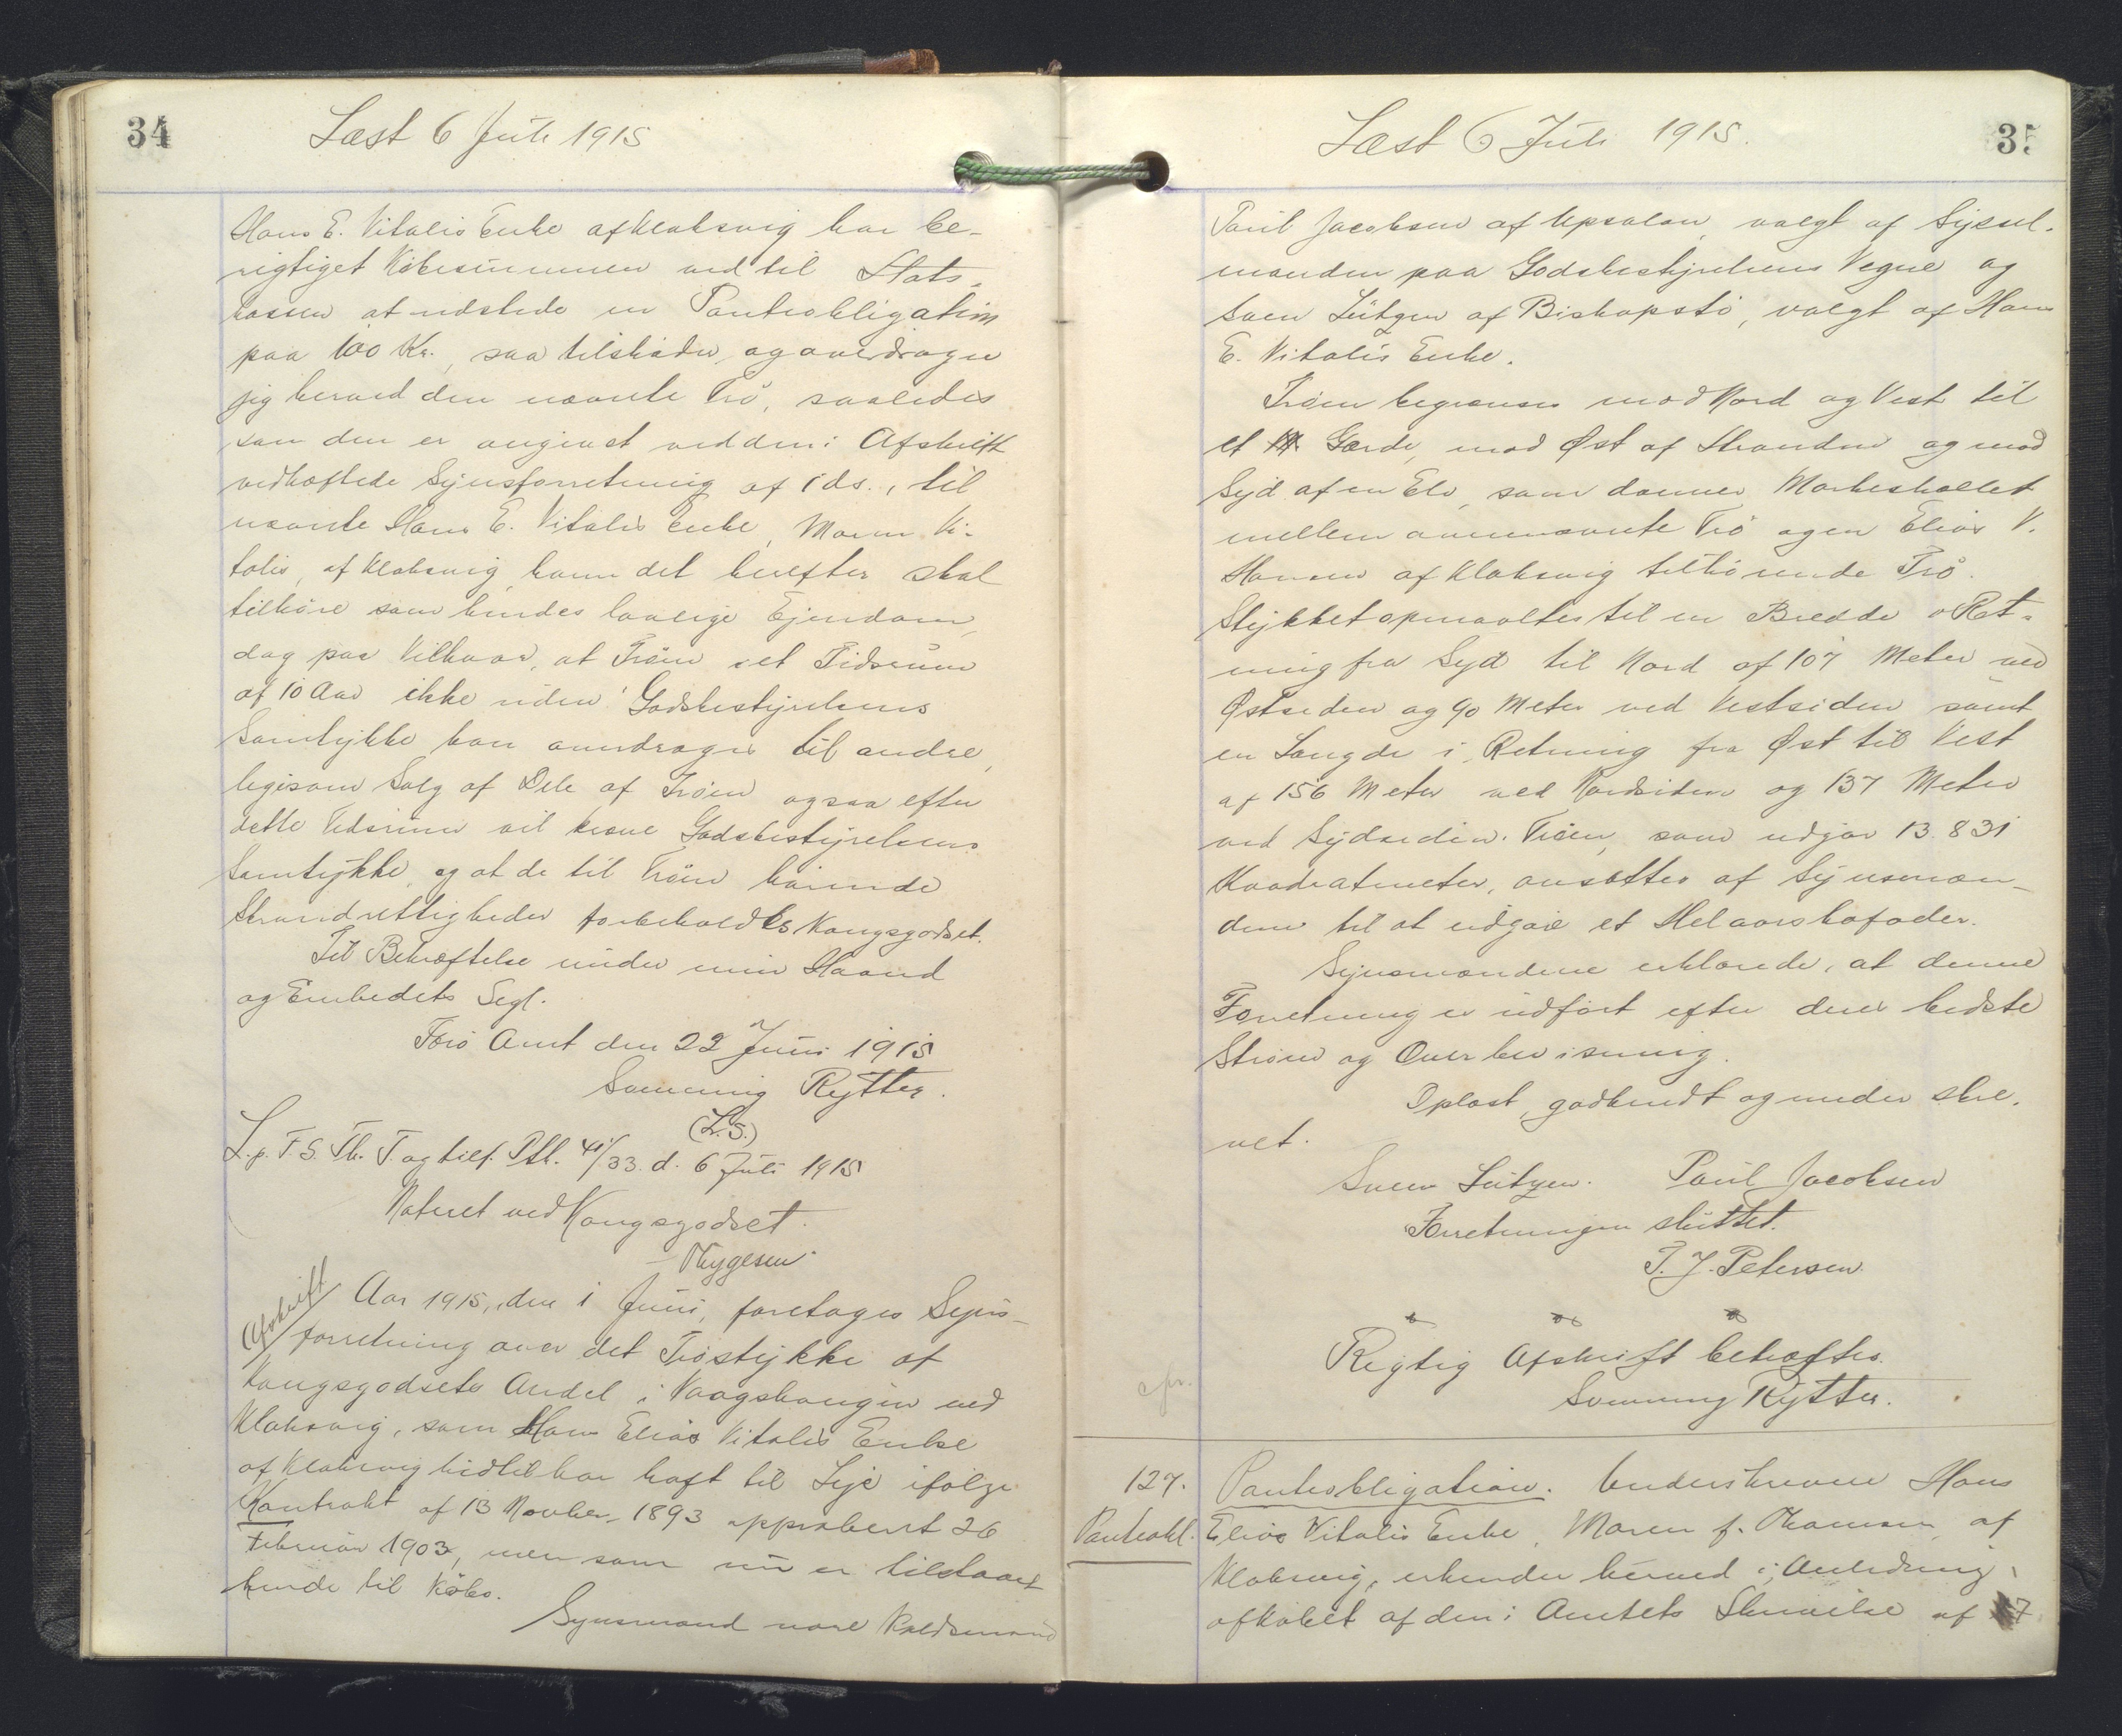 34
Læst 6 Juli 1915
Hans E. Vitalis Enke af Klaksvig har be-
rigtiget Købesummen ved til Stats-
kassen at udstede en Panteobligation
paa 100 Kr., saa tilskøder og overdrager
jeg herved den nævnte Trø, saaledes
som den er angivet ved den i Afskrift
vedhæftede Synsforretning af 1 ds., til
nævnte Hans E. Vitalis Enke, Maren Vi-
talis, af Klaksvig, hvem det herefter skal
tilhøre som hendes lovlige Ejendom,
dog paa Vilkaar, at Trøen i et Tidsrum
af 10 Aar ikke uden Godsbestyrelsens
Samtykke kan overdrages til andre,
ligesom Salg af Dele af Trøen ogsaa efter
dette Tidsrum vil kræve Godsbestyrelsens
Samtykke, og at de til Trøen hørende
Strandrettigheder forbeholdes Kongsgodset.
Til Bekræftelse under min Haand
og Embedets Segl.
Færø Amt den 22 Juni 1915
Svenning Rytter.
(L.S.)
L.p. F. S. Th. T. og tilf. Ptk. 41/33. d. 6 Juli 1915
Noteret ved Kongsgodset.
Thygesen
Afskrift
Aar 1915, den 1 Juni, foretages Syns-
forretning over det Trøstykke af
Kongsgodsets Andel i Vaagshaugin ved
Klaksvig, som Hans Elias Vitalis Enke
af Klaksvig hidtil har haft til Leje ifølge
Kontrakt af 13 Novber. 1893 approberet 26
Februar 1903, men som nu er tilstaaet
hende til Købs.
Synsmænd vare Koldsmand
35
Læst 6 Juli 1915.
Poul Jacobsen af Upsalon, valgt af Syssel-
manden paa Godsbestyrelsens Vegne og
Sven Lützen af Biskopstø, valgt af Hans
E. Vitalis Enke.
Trøen begrænses mod Nord og Vest til
et Gærde, mod Øst af Stranden og mod
Syd af en Elv, som danner Markeskellet
mellem ovennævnte Trø og en Elias V.
Hansen af Klaksvig tilhørende Trø.
Stykket opmaaltes til en Bredde i Ret-
ning fra Syd til Nord af 107 Meter ved
Østsiden og 90 Meter ved Vestsiden samt
en Længde i Retning fra Øst til Vest
af 156 Meter ved Nordsiden og 137 Meter
ved Sydsiden. Trøen, som udgør 13.831
Kvadratmeter, ansættes af Synsmæn-
dene til at udgøre et Helaarskofoder.
Synsmændene erklærede, at denne
Forretning er udført efter deres bedste
Skøn og Overbevisning.
Oplæst, godkendt og underskre-
vet.
Sven Lützen. Poul Jacobsen
Forretningen sluttet.
T. J. Petersen.
Rigtig Afskrift bekræftes.
Svenning Rytter.
127.
Panteobl.
Panteobligation. Underskrevne Hans
Elias Vitalis Enke, Maren f. Thomsen, af
Klaksvig, erkender herved i Anledning
af Købet af den i Amtets Skrivelse af 17